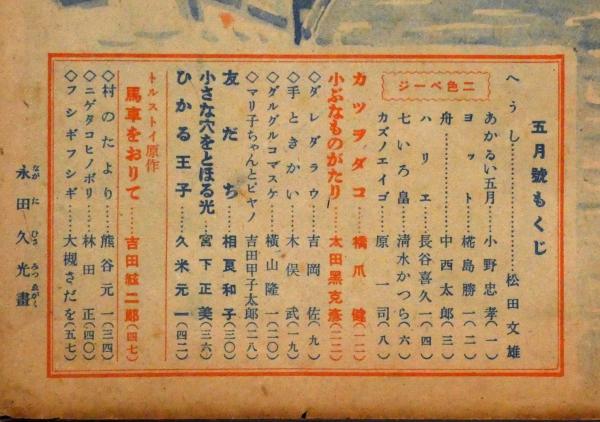 五月號もくじ
へうし…………松田文雄
二色ページ
あかるい五月……小野忠孝(一)
ヨット……椛島勝一(二)
舟……中西太郎(三)
ハリエ……長谷喜久一(四)
七いろ畠……淸水かつら(六)
カズノエイゴ……原一司(八)
カツヲダコ……橋爪健(一二)
小ぶなものがたり……太田黑克彥(二二)
◇ダレダラウ……吉岡佐(九)
◇手ときかい……木俣武(一九)
◇ダルグルコマスケ……橫山隆一(二〇)
◇マリ子ちゃんとピヤノ……吉田甲子太郞(二八)
友だち……相良和子(三〇)
小さな穴をとほる光……宮下正美(三六)
ひかる王子……久米元一(四二)
トルストイ原作
馬車をおりて……吉田絃二郞(四七)
◇村のたより……熊谷元一(三四)
◇ニゲタコヒノボリ……林田正(四〇)
◇フシギフシギ……大槻さだを(五七)
永田久光畫
ながた ひさみつ ゑがく